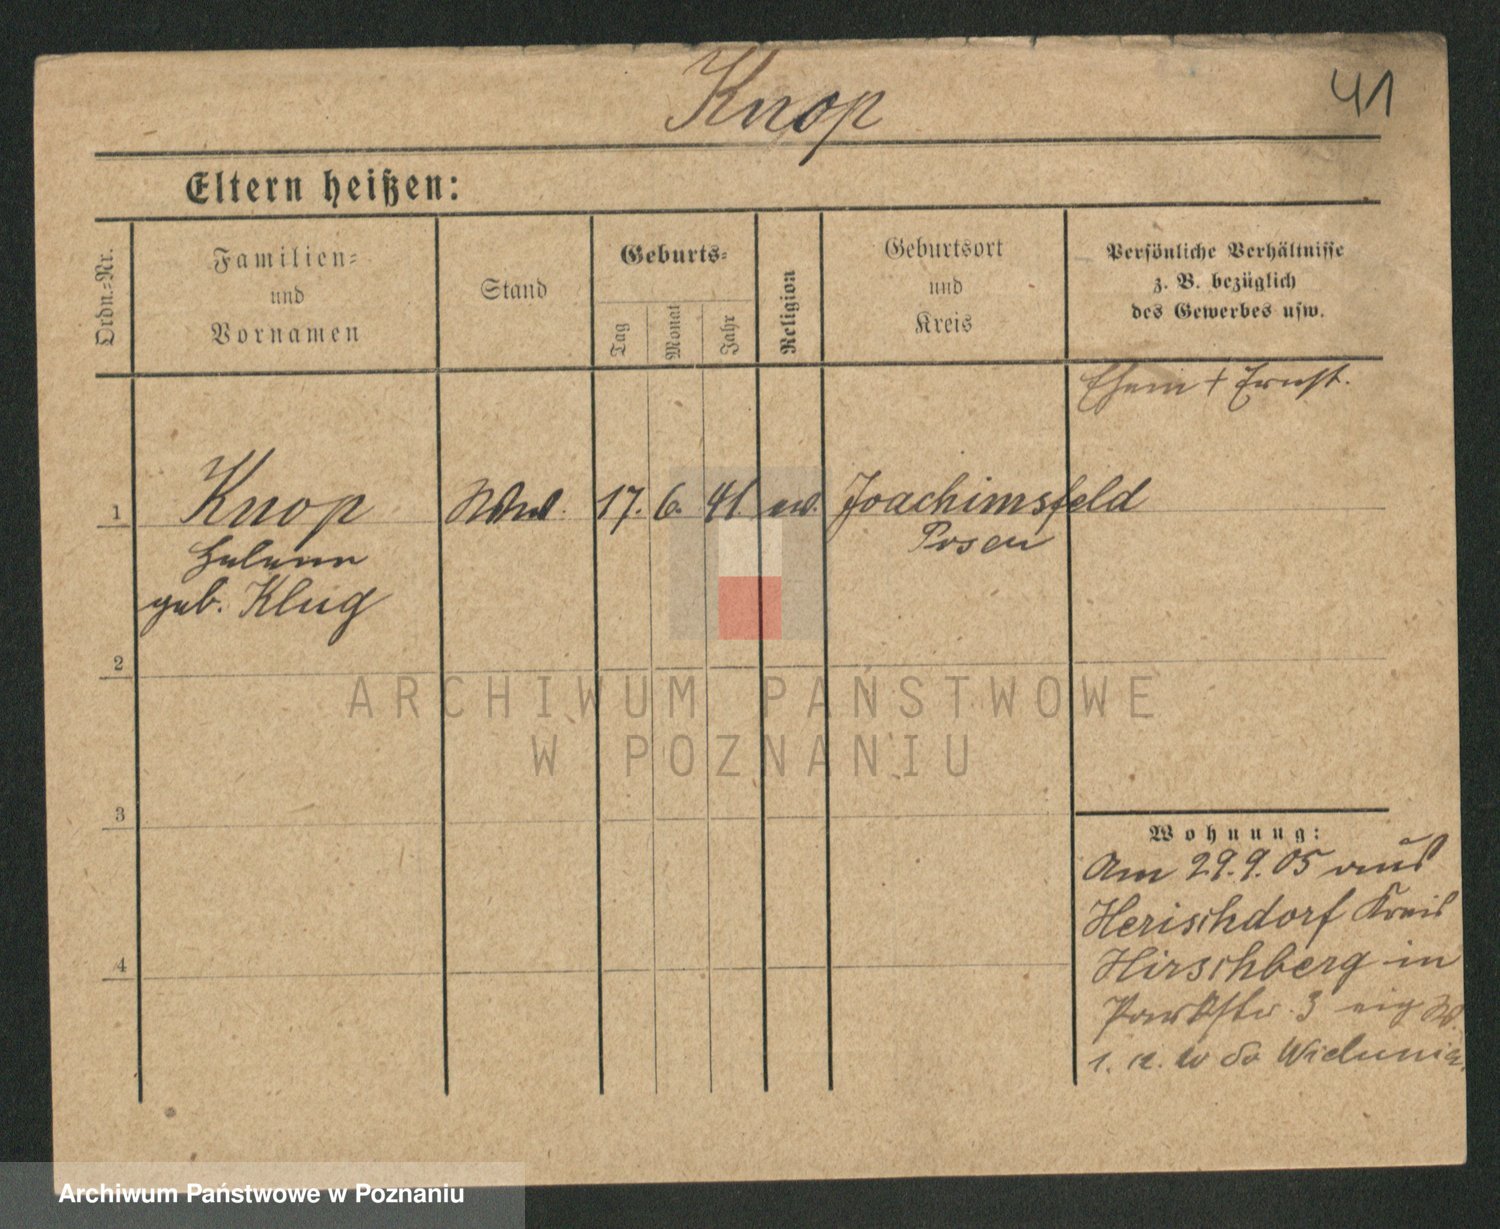 Knop
41
Eltern heißen:
Ordn.-Nr.
Familien-
und
Vornamen
Stand
Geburts-
Tag
Monat
Jahr
Religion
Geburtsort
und
Kreis
Persönliche Verhältnisse
z. B. bezüglich
des Gewerbes usw.
Ehem + Ernst.
1
Knop
Wwe. 17. 6. 41 ev. Joachimsfeld
Posen
Helene
geb. Klug
2
3
4
Wohnung:
Am 29.9.05 aus
Herischdorf Kreis
Hirschberg in
Parkstr. 3 eig W.
ARCHIWUM PAŃSTWOWE
W POZNANIU
Archiwum Państwowe w Poznaniu